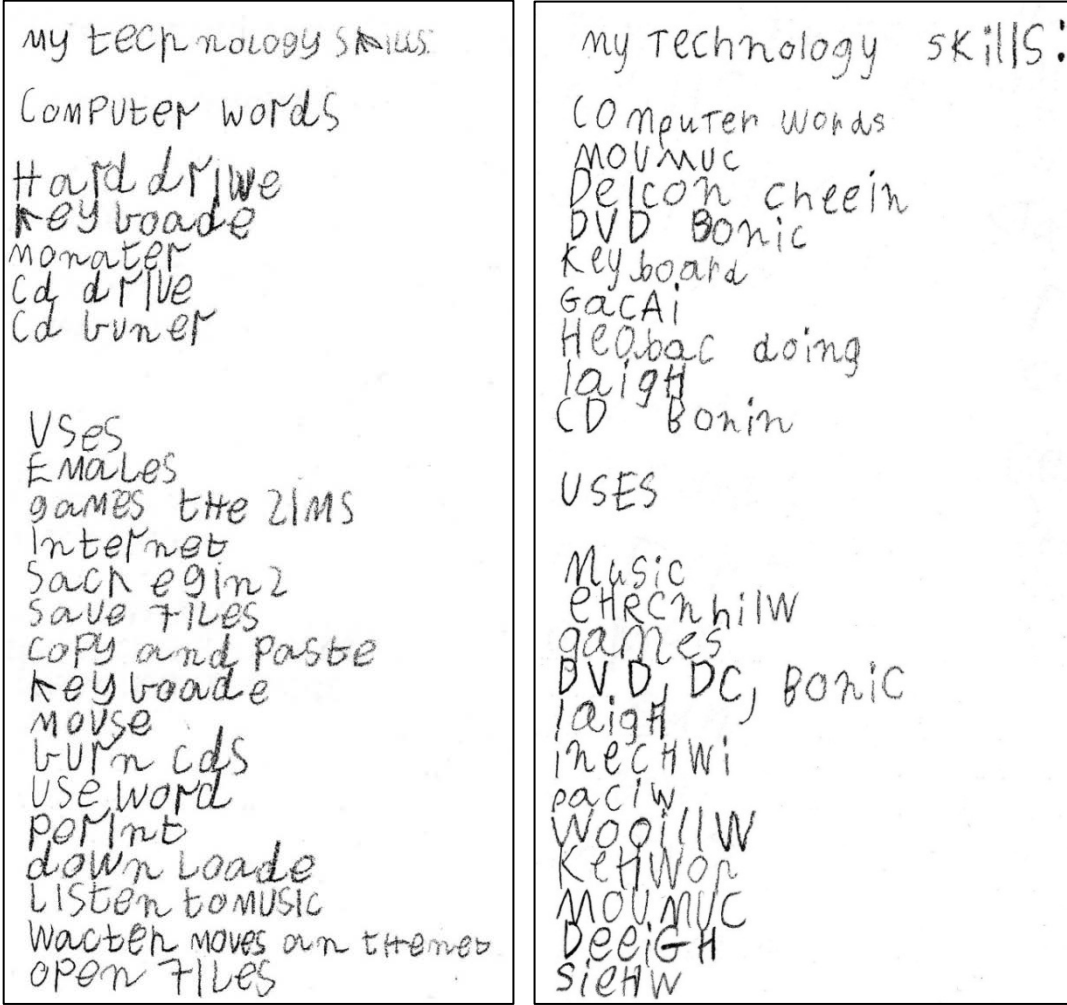 My technology skills:
Computer words
Hard driwe
keyboade
Monater
Cd drive
Cd buner
Uses
Emales
games tHe ZIMS
Internet
Sach egin2
Save FILes
Copy and Paste
keyboade
Mouse
burn cds
Use word
Porint
down Loade
Listen to Music
Wacteh Moves oun tHe net
Open FILes
my Technology skills:
Computer words
MOUMUC
Delcon cheein
DVD Bonic
Keyboard
GacAi
HeObac doing
laigH
CD Bonin
USES
Music
eHRCnhilW
games
DVD, DC, Bonic
laigH
inecHWi
paciW
WooillW
KeHWon
MOUMUC
DeeiGH
sieHW